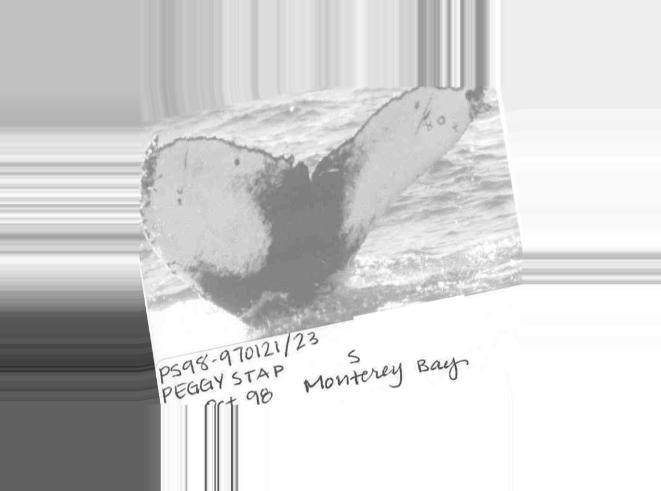 PS98-970121/23
PEGGY STAP
S
Oct 98 Monterey Bay